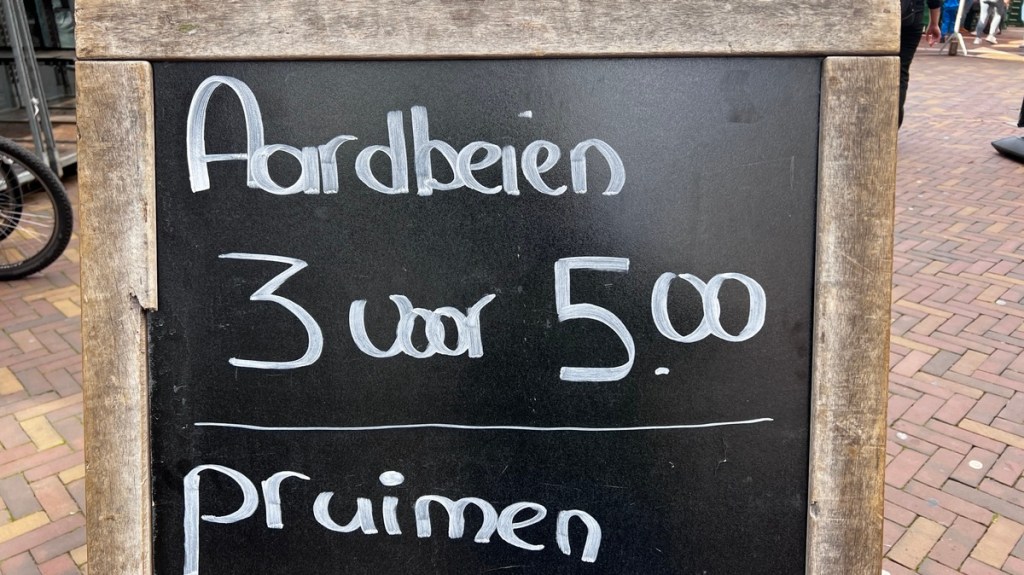 Aardbeien
3 voor 5.00
pruimen